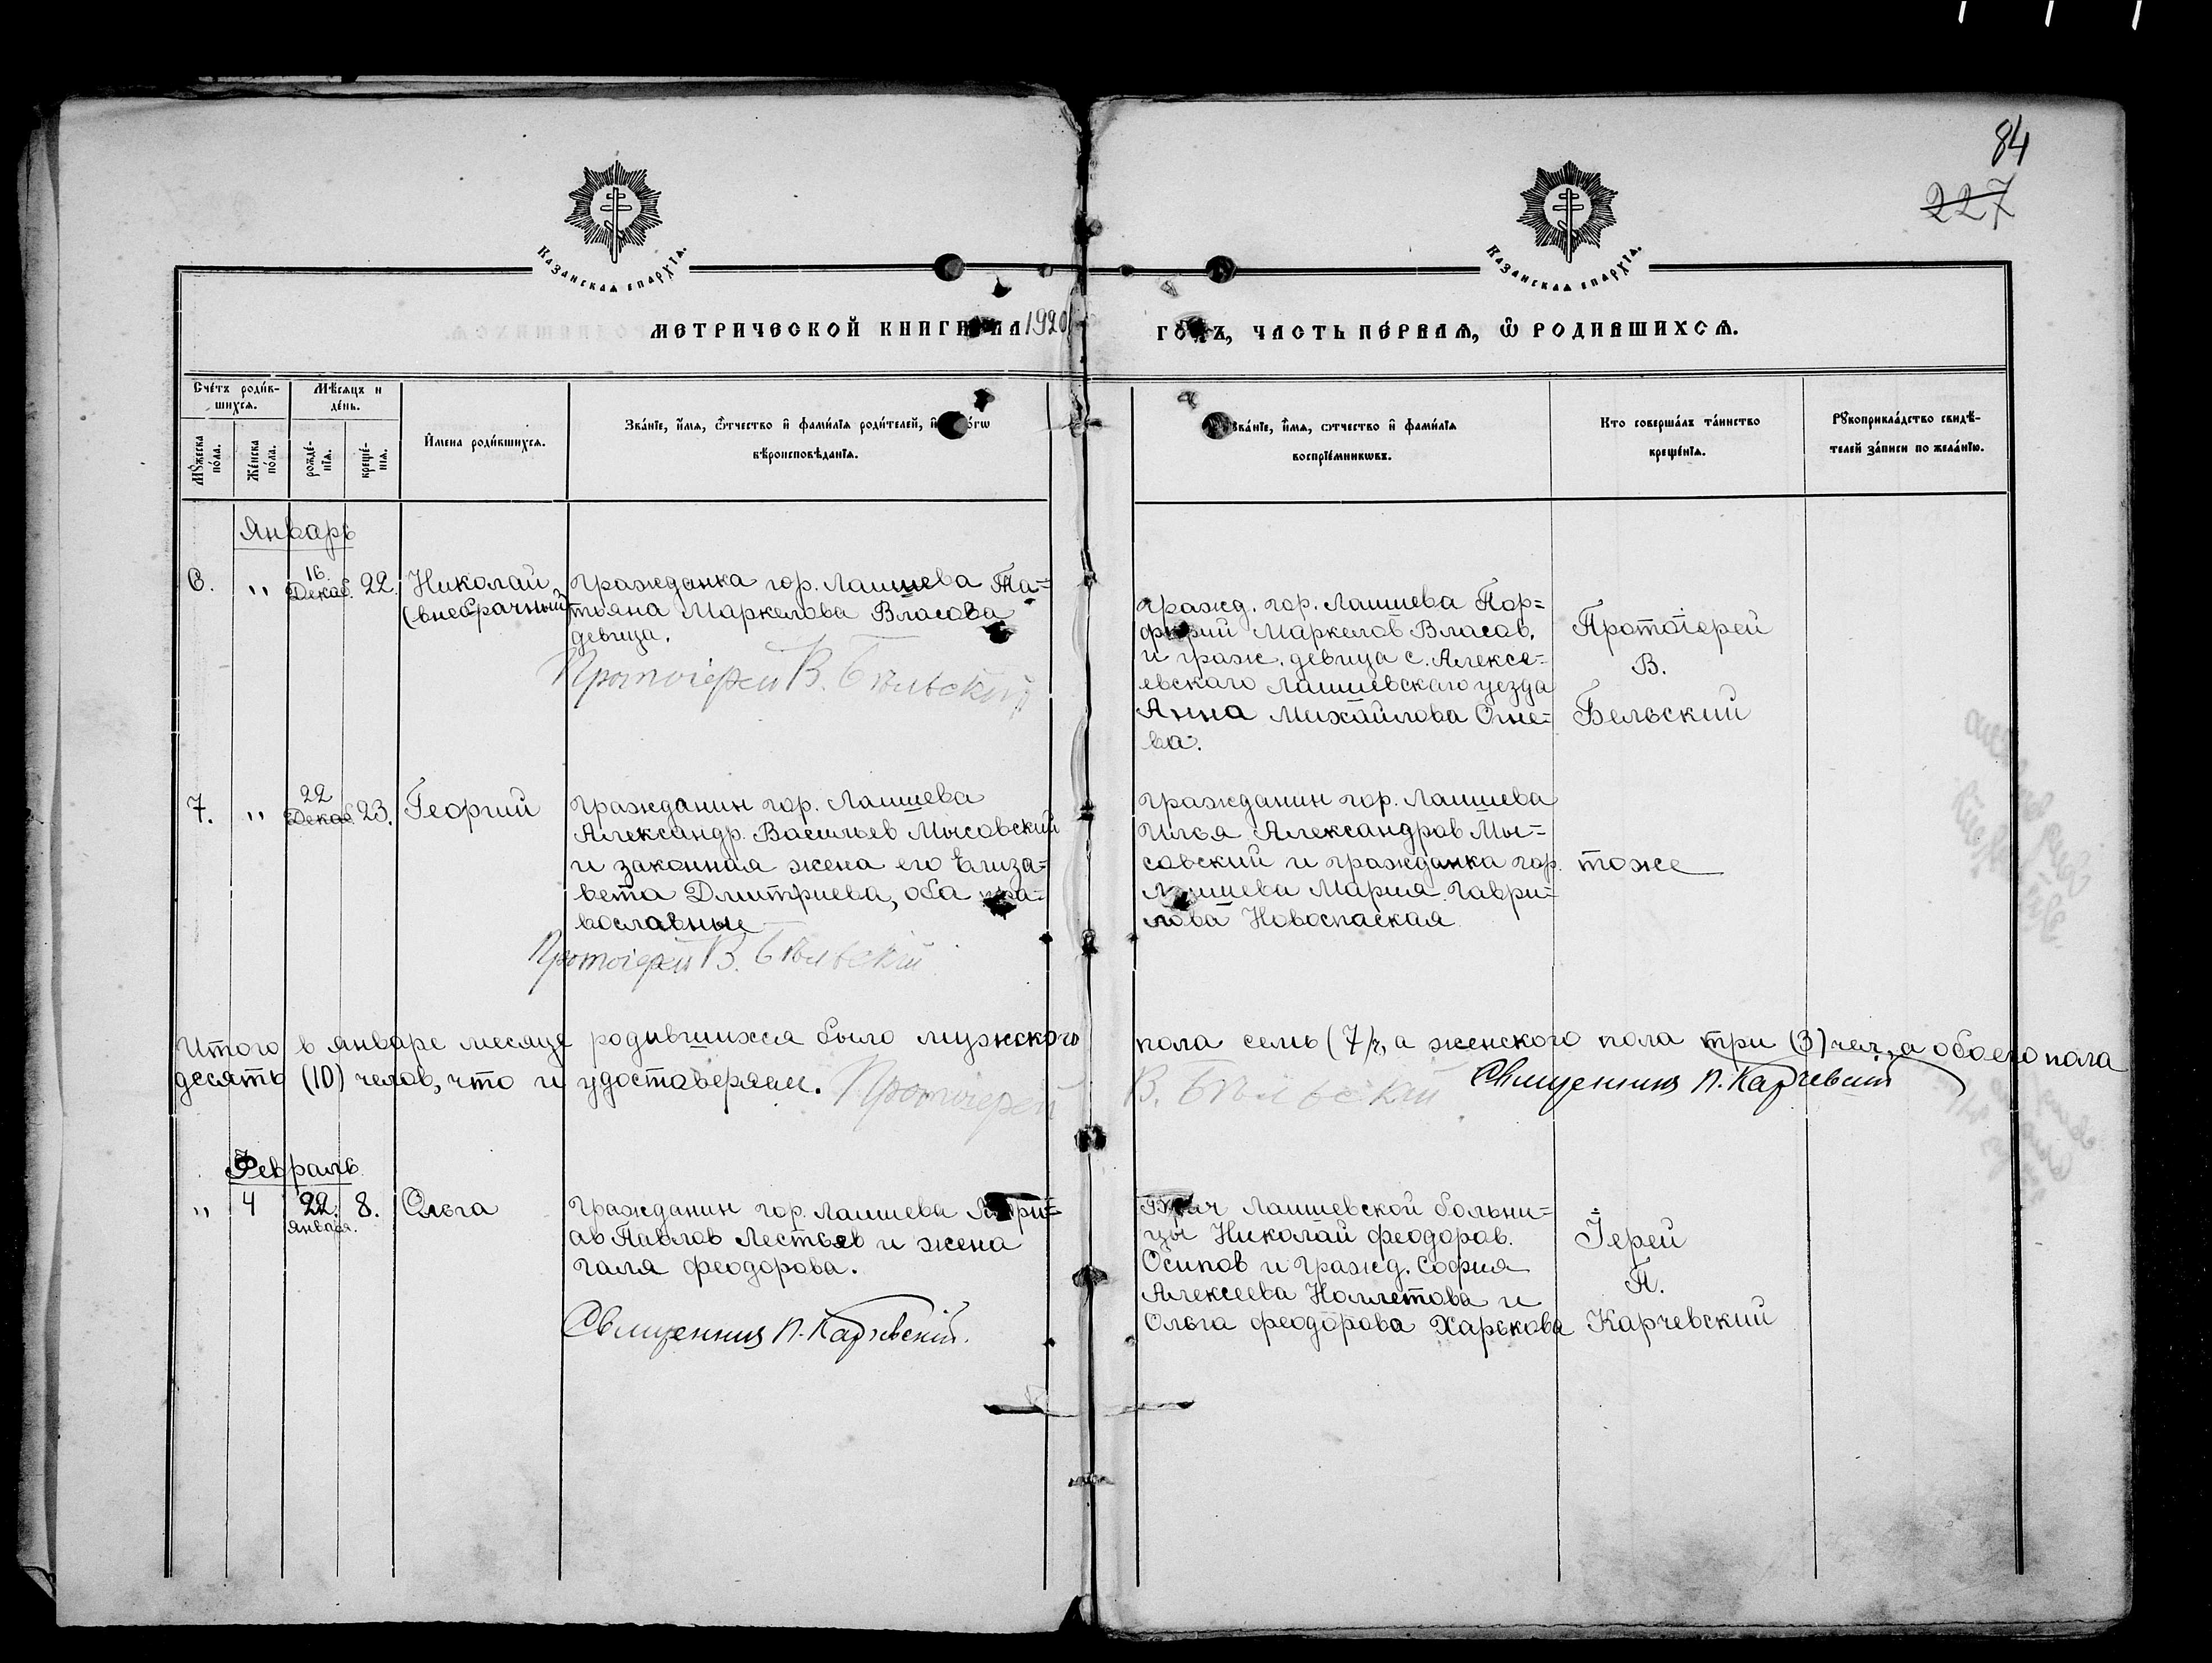 84
227
Казанская епархїѧ.
Казанская епархїѧ.
МЕТРИЧЕСКОЙ КНИГИ НА 1920
ГОДЪ, ЧАСТЬ ПЕРВАЯ, Ѡ РОДИВШИХСЯ.
Счетъ родив-
шихся.
Мѣсяцъ и
день.
Мужеска
пола.
Женска
пола.
рожде-
нїя.
креще-
нїя.
Имена родившихся.
Званїе, имя, отчество и фамилїя родителей, и
вѣроисповѣданїя.
Званїе, имя, отчество и фамилїя
воспрїемниковъ.
Кто совершалъ таинство
крещенїя.
Рукоприкладство свидѣ-
телей записи по желанїю.
Январь
6. " 16. Декаб. 22. Николай
(внебрачный)
Гражданка гор. Лаишева Та=
тьяна Маркелова Власова
девица.
Протоіерей В. Бѣльскій
Гражд. гор. Лаишева Пор=
фирий Маркелов Власов.
и граж. девица с. Алексе=
евскаго Лаишевскаго уезда
Анна Михайлова Огне=
ва.
Протоіерей
В.
Бельский
7. " 22 Декаб. 23. Георгий
Гражданин гор. Лаишева
Александр. Васильев Мысовский
и законная жена его Елиза=
вета Дмитриева, оба пра=
вославные
Протоіерей В. Бѣльскій
Гражданин гор. Лаишева
Илья Александров Мы=
совский и гражданка гор.
Лаишева Мария Гаври=
лова Новоспаская
тоже
Итого в январе месяце родившихся было мужского пола семь (7), а женского пола три (3) чел., а обоего пола
десять (10) челов, что и удостоверяем. Протоіерей В. Бѣльскій Священникъ П. Карчевскій
Февраль
" 4 22. января. 8. Ольга
Гражданин гор. Лаишева
ав Павлов Лестьев и жена
Галя Феодорова.
Священникъ П. Карчевскій.
Врач Лаишевской больни=
цы Николай Феодоров.
Осипов и гражд. София
Алексеева и
Ольга Феодорова Харькова
Іерей
П.
Карчевский